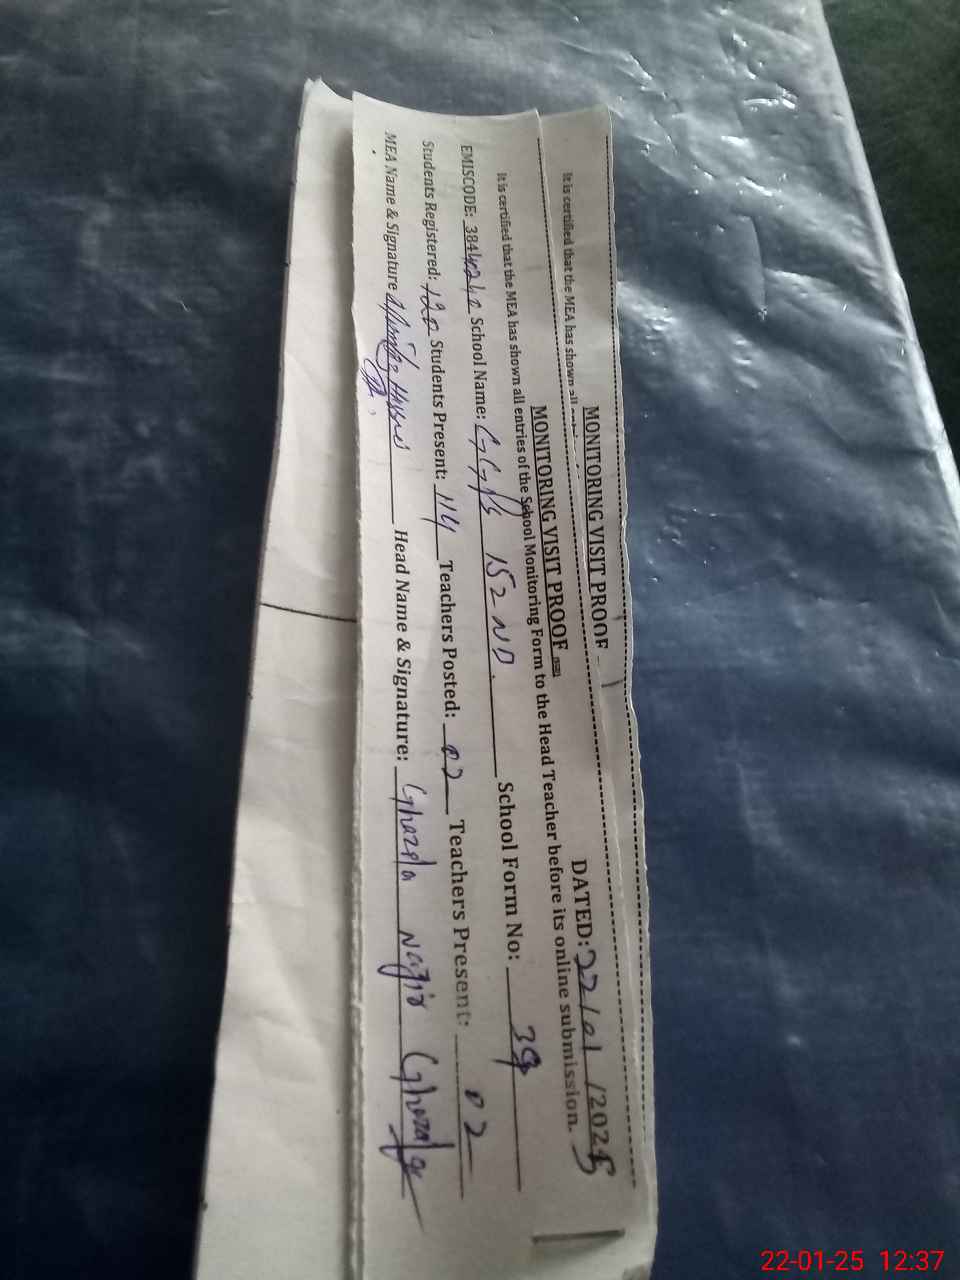 MONITORING VISIT PROOF
It is certified that the MEA has shown all
MONITORING VISIT PROOF
DATED: 22/01/2025
It is certified that the MEA has shown all entries of the School Monitoring Form to the Head Teacher before its online submission.
EMISCODE: School Name: GGPS 152 ND. School Form No: 39
Students Registered: 120 Students Present: 114 Teachers Posted: 02 Teachers Present: 02
MEA Name & Signature Head Name & Signature: Ghazala Nazir Ghazala
22-01-25 12:37